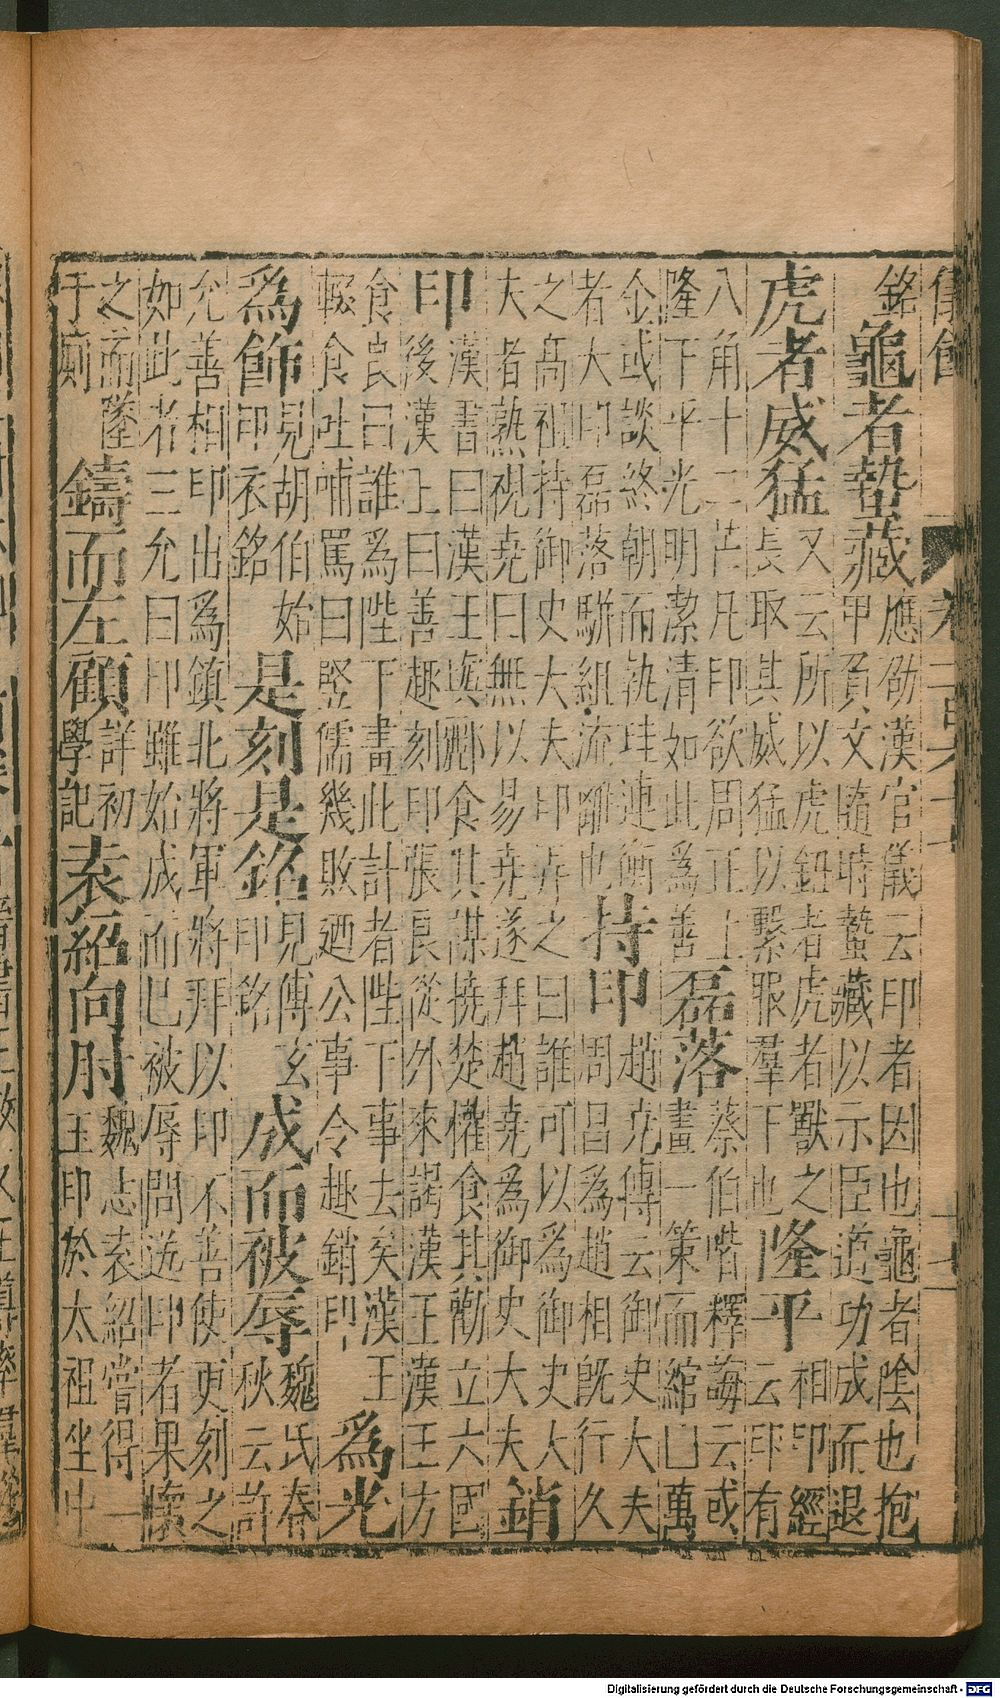 銘龜者蟄藏應劭漢官儀云印者因也龜者陰也抱甲負文隨時蟄藏以示臣道功成而退
虎者威猛又云所以虎鈕者虎者獸之長取其威猛以繫服羣下也隆平相印經云印有
八角十二芒凡印欲周正上隆下平光明潔清如此為善磊落蔡伯喈釋誨云或畫一策而綰巳萬
金或談終朝而執珪連衡者大印磊落駢組流離也持印趙尭傳云御史大夫周昌為趙相旣行久
之高祖持御史大夫印弄之曰誰可以為御史大夫者熟視堯曰無以易堯遂拜趙堯為御史大夫銷
印漢書曰漢王與酈食其謀撓楚權食其勸立六國後漢王曰善趣刻印張良從外來謁漢王漢王方
食良曰誰為陛下畫此計者陛下事去矣漢王輟食吐哺罵曰豎儒幾敗迺公事令趣銷印為光
為飾見胡伯始印衣銘是刻是銘見傅玄印銘成而被辱魏氏春秋云許
允善相印出為鎮北將軍將拜以印不善使更刻之如此者三允曰印雖始成而已被辱問送印者果懷
之而墜于廁鑄而左顧詳初學記袁紹向肘魏志袁紹嘗得一玉印於太祖坐中
Digitalisierung gefördert durch die Deutsche Forschungsgemeinschaft - DFG